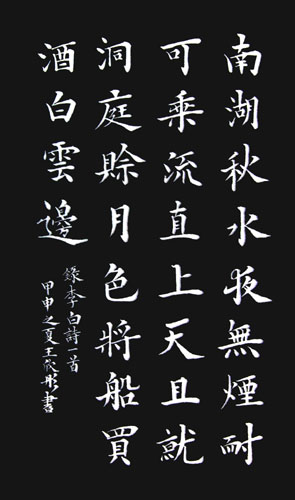 南湖秋水夜無煙耐
可乘流直上天且就
洞庭賒月色將船買
酒白雲邊
錄李白詩一首
甲申之夏王彤書